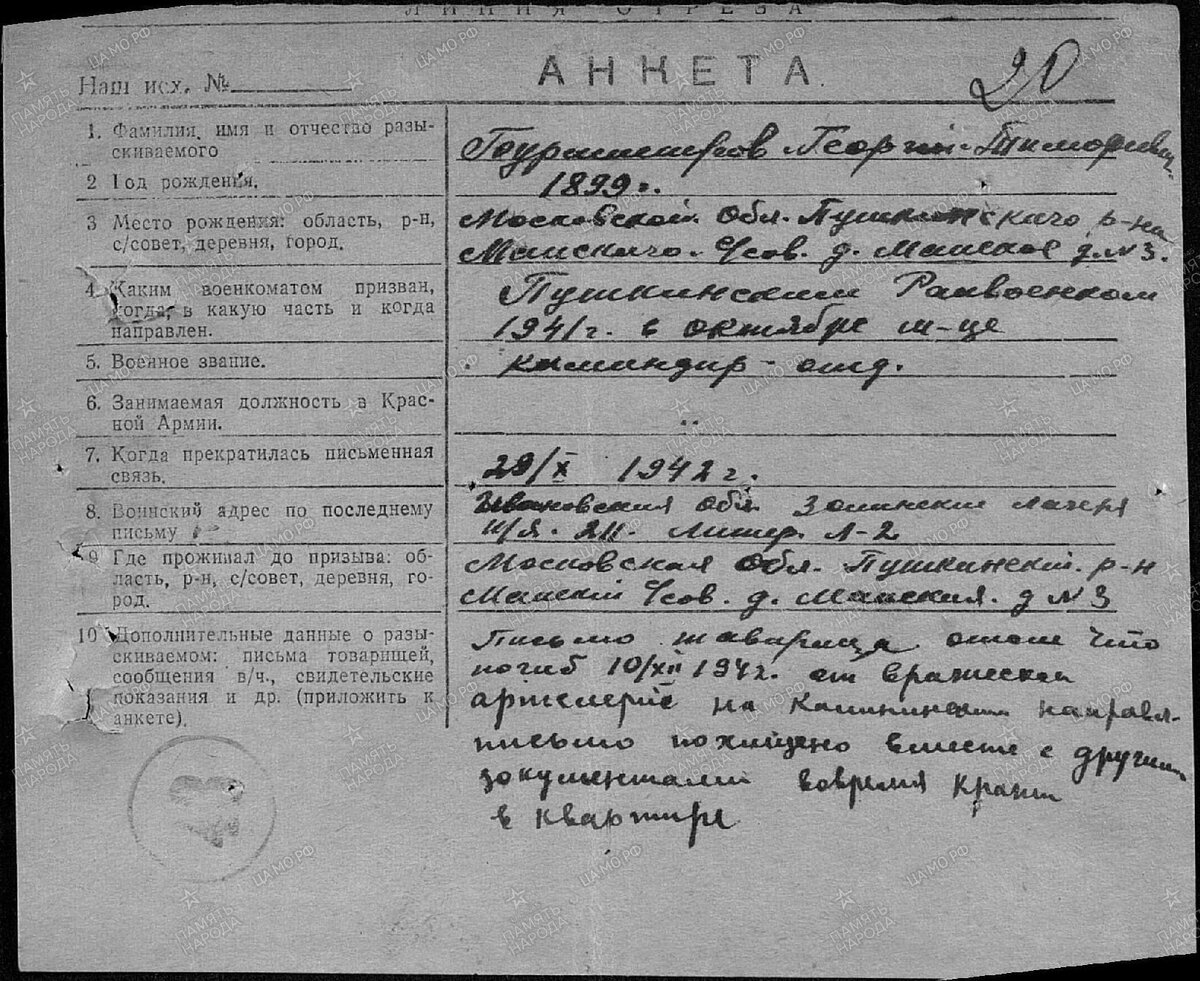 ЛИНИЯ ОТРЕЗА
АНКЕТА
20
Наш исх. №
1. Фамилия, имя и отчество разы-
скиваемого
Георгий Тимофеевич
2 Год рождения.
1899 г.
3 Место рождения: область, р-н,
с/совет, деревня, город.
Московской Обл. Пушкинскичо р-на
Майскичо С/сов. д. Майское д. N 3.
4. Каким военкоматом призван,
когда, в какую часть и когда
направлен.
Пушкинским Райвоенком
1941 г. в октябре м-це
5. Военное звание.
командир - отд.
6. Занимаемая должность в Крас-
ной Армии.
"
7. Когда прекратилась письменная
связь.
29/X 1942 г.
8. Воинский адрес по последнему
письму
Ивановская Обл лагеря
П/Я. 211. Литер. Л-2
9 Где проживал до призыва: об-
ласть, р-н, с/совет, деревня, го-
род.
Московская Обл. Пушкинский. р-н
Майский С/сов. д. Майския. д N 3
10 Дополнительные данные о разы-
скиваемом: письма товарищей,
сообщения в/ч., свидетельские
показания и др. (приложить к
анкете).
Письмо таварища отом что
погиб 10/XII 1942 г. от вражеской
артелерие на Калининском направл-
письмо похищено вместе с другими
документами вовремя кражи
в квартире